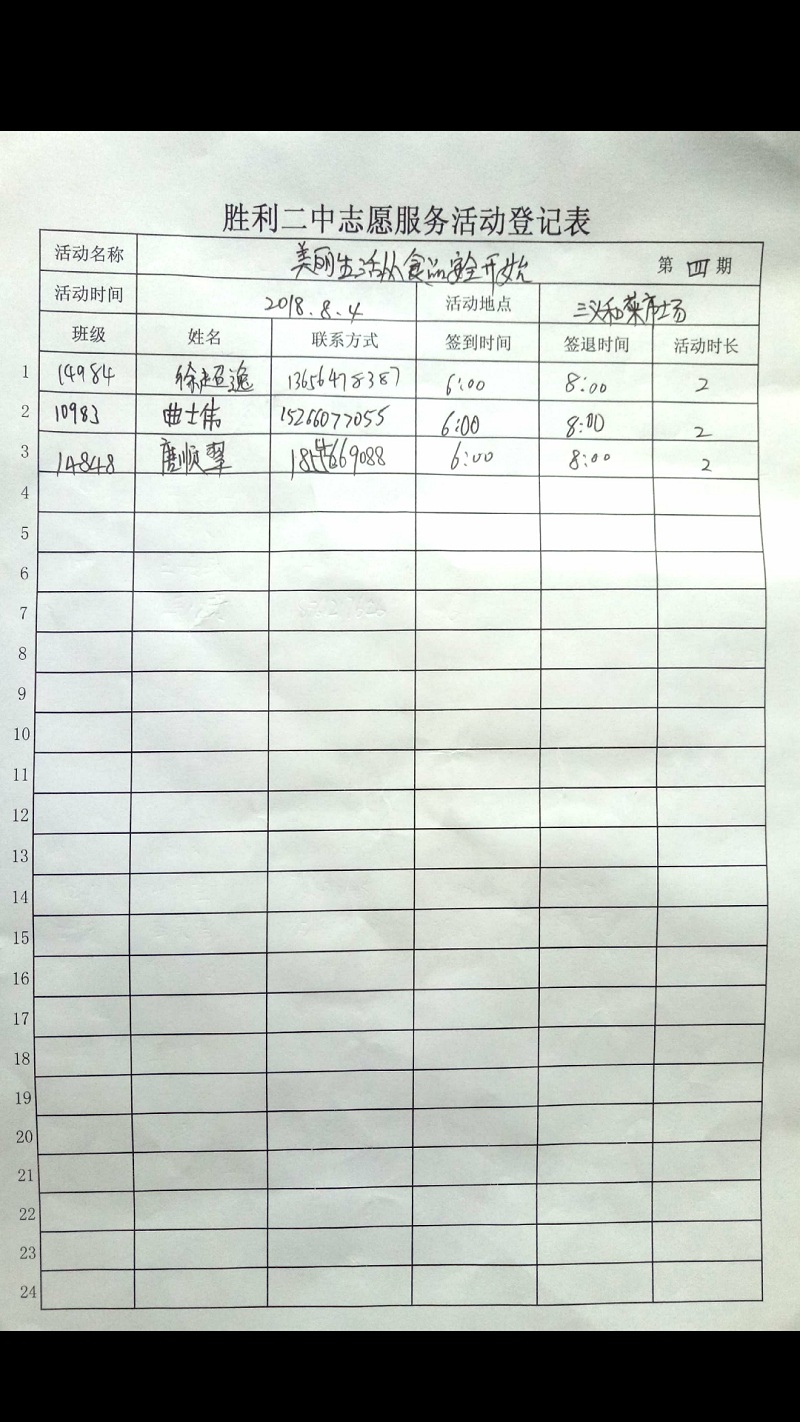 胜利二中志愿服务活动登记表
活动名称 美丽生活从食品安全开始 第 四 期
活动时间 2018.8.4 活动地点 三义和菜市场
班级 姓名 联系方式 签到时间 签退时间 活动时长
1 14984 徐超逸 13656478387 6:00 8:00 2
2 10983 曲士伟 15266077055 6:00 8:00 2
3 14848 6:00 8:00 2
4
5
6
7
8
9
10
11
12
13
14
15
16
17
18
19
20
21
22
23
24